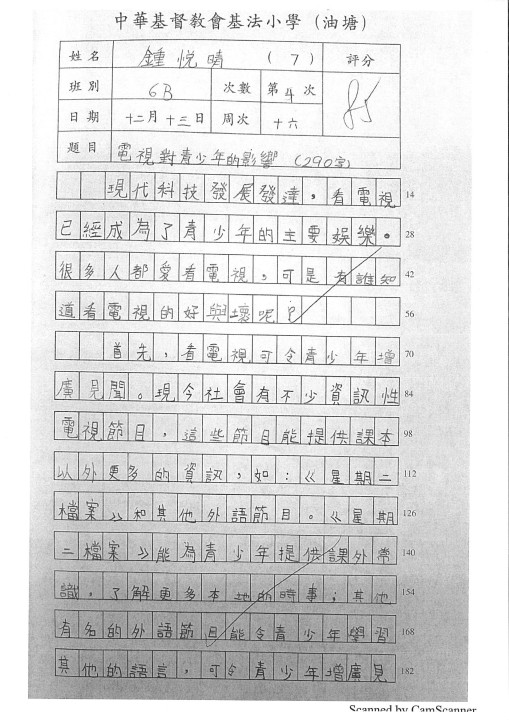 中華基督教會基法小學（油塘）
姓名 鍾悅晴 (7) 評分
班別 6B 次數 第4次 85
日期 十二月十三日 周次 十六
題目 電視對青少年的影響 (290字)
現代科技發展發達，看電視 14
已經成為了青少年的主要娛樂。 28
很多人都愛看電視，可是有誰知 42
道看電視的好與壞呢？ 56
首先，看電視可令青少年增 70
廣見聞。現今社會有不少資訊性 84
電視節目，這些節目能提供課本 98
以外更多的資訊，如：《星期二 112
檔案》和其他外語節目。《星期 126
二檔案》能為青少年提供課外常 140
識，了解更多本地的時事；其他 154
有名的外語節目能令青少年學習 168
其他的語言，可令青少年增廣見 182
Scanned by CamScanner